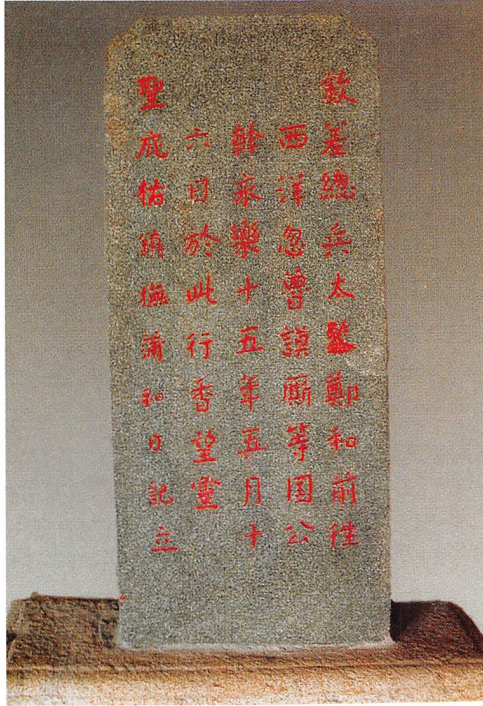 欽差總兵太監鄭和前往
西洋忽魯謨厮等囯公
幹永樂十五年五月十
六日於此行香望靈
聖庇佑鎮撫蒲和日記立